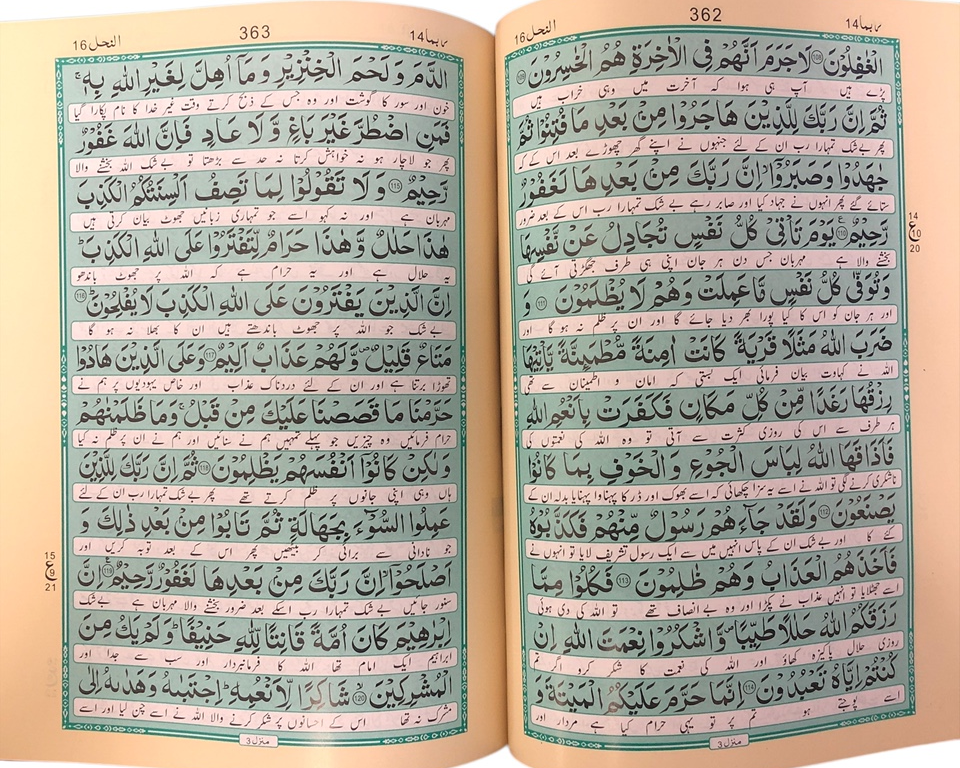 النحل 16
362
ربما 14
الْغٰفِلُوْنَ ﴿108﴾ لَا جَرَمَ اَنَّهُمْ فِی الْاٰخِرَةِ هُمُ الْخٰسِرُوْنَ ﴿109﴾
پڑے ہیں آپ ہی ہوا کہ آخرت میں وہی خراب ہیں
ثُمَّ اِنَّ رَبَّكَ لِلَّذِیْنَ هَاجَرُوْا مِنْۢ بَعْدِ مَا فُتِنُوْا ثُمَّ
پھر بے شک تمہارا رب ان کے لئے جنہوں نے اپنے گھر چھوڑے بعد اس کے کہ
جٰهَدُوْا وَ صَبَرُوْۤا ۙ اِنَّ رَبَّكَ مِنْۢ بَعْدِهَا لَغَفُوْرٌ
ستائے گئے پھر انہوں نے جہاد کیا اور صابر رہے بے شک تمہارا رب اس کے بعد ضرور
رَّحِیْمٌ ﴿110﴾ یَوْمَ تَاْتِیْ كُلُّ نَفْسٍ تُجَادِلُ عَنْ نَّفْسِهَا
بخشنے والا ہے مہربان جس دن ہر جان اپنی ہی طرف جھگڑتی آئے گی
14
ع
10
20
وَ تُوَفّٰی كُلُّ نَفْسٍ مَّا عَمِلَتْ وَ هُمْ لَا یُظْلَمُوْنَ ﴿111﴾ وَ
اور ہر جان کو اس کا کیا پورا بھر دیا جائے گا اور ان پر ظلم نہ ہو گا اور
ضَرَبَ اللّٰهُ مَثَلًا قَرْیَةً كَانَتْ اٰمِنَةً مُّطْمَىِٕنَّةً یَّاْتِیْهَا
اللہ نے کہاوت بیان فرمائی ایک بستی کہ امان و اطمینان سے تھی
رِزْقُهَا رَغَدًا مِّنْ كُلِّ مَكَانٍ فَكَفَرَتْ بِاَنْعُمِ اللّٰهِ
ہر طرف سے اس کی روزی کثرت سے آتی تو وہ اللہ کی نعمتوں کی
فَاَذَاقَهَا اللّٰهُ لِبَاسَ الْجُوْعِ وَ الْخَوْفِ بِمَا كَانُوْا
ناشکری کرنے لگی تو اللہ نے اسے یہ سزا چکھائی کہ اسے بھوک اور ڈر کا پہناوا پہنایا بدلہ ان کے
یَصْنَعُوْنَ ﴿112﴾ وَ لَقَدْ جَآءَهُمْ رَسُوْلٌ مِّنْهُمْ فَكَذَّبُوْهُ
کئے کا اور بے شک ان کے پاس انہیں میں سے ایک رسول تشریف لایا تو انہوں نے
فَاَخَذَهُمُ الْعَذَابُ وَ هُمْ ظٰلِمُوْنَ ﴿113﴾ فَكُلُوْا مِمَّا
اسے جھٹلایا تو انہیں عذاب نے پکڑا اور وہ بے انصاف تھے تو اللہ کی دی ہوئی
رَزَقَكُمُ اللّٰهُ حَلٰلًا طَیِّبًا ۪ وَّ اشْكُرُوْا نِعْمَتَ اللّٰهِ اِنْ
روزی حلال پاکیزہ کھاؤ اور اللہ کی نعمت کا شکر کرو اگر تم
كُنْتُمْ اِیَّاهُ تَعْبُدُوْنَ ﴿114﴾ اِنَّمَا حَرَّمَ عَلَیْكُمُ الْمَیْتَةَ وَ
اسے پوجتے ہو تم پر تو یہی حرام کیا ہے مردار اور
منزل 3
النحل 16
363
ربما 14
الدَّمَ وَ لَحْمَ الْخِنْزِیْرِ وَ مَاۤ اُهِلَّ لِغَیْرِ اللّٰهِ بِهٖ ۚ
خون اور سور کا گوشت اور وہ جس کے ذبح کرتے وقت غیر خدا کا نام پکارا گیا
فَمَنِ اضْطُرَّ غَیْرَ بَاغٍ وَّ لَا عَادٍ فَاِنَّ اللّٰهَ غَفُوْرٌ
پھر جو لاچار ہو نہ خواہش کرتا نہ حد سے بڑھتا تو بے شک اللہ بخشنے والا
رَّحِیْمٌ ﴿115﴾ وَ لَا تَقُوْلُوْا لِمَا تَصِفُ اَلْسِنَتُكُمُ الْكَذِبَ
مہربان ہے اور نہ کہو اسے جو تمہاری زبانیں جھوٹ بیان کرتی ہیں
هٰذَا حَلٰلٌ وَّ هٰذَا حَرَامٌ لِّتَفْتَرُوْا عَلَی اللّٰهِ الْكَذِبَ ؕ
یہ حلال ہے اور یہ حرام ہے کہ اللہ پر جھوٹ باندھو
اِنَّ الَّذِیْنَ یَفْتَرُوْنَ عَلَی اللّٰهِ الْكَذِبَ لَا یُفْلِحُوْنَ ؕ ﴿116﴾
بے شک جو اللہ پر جھوٹ باندھتے ہیں ان کا بھلا نہ ہو گا
مَتَاعٌ قَلِیْلٌ ۪ وَّ لَهُمْ عَذَابٌ اَلِیْمٌ ﴿117﴾ وَ عَلَی الَّذِیْنَ هَادُوْا
تھوڑا برتنا ہے اور ان کے لئے دردناک عذاب اور خاص یہودیوں پر ہم نے
حَرَّمْنَا مَا قَصَصْنَا عَلَیْكَ مِنْ قَبْلُ ۚ وَ مَا ظَلَمْنٰهُمْ
حرام فرمائیں وہ چیزیں جو پہلے تمہیں ہم نے سنائیں اور ہم نے ان پر ظلم نہ کیا
وَ لٰكِنْ كَانُوْۤا اَنْفُسَهُمْ یَظْلِمُوْنَ ﴿118﴾ ثُمَّ اِنَّ رَبَّكَ لِلَّذِیْنَ
ہاں وہی اپنی جانوں پر ظلم کرتے تھے پھر بے شک تمہارا رب ان کے لئے
عَمِلُوا السُّوْٓءَ بِجَهَالَةٍ ثُمَّ تَابُوْا مِنْۢ بَعْدِ ذٰلِكَ وَ
جو نادانی سے برائی کر بیٹھیں پھر اس کے بعد توبہ کریں اور
اَصْلَحُوْۤا ۙ اِنَّ رَبَّكَ مِنْۢ بَعْدِهَا لَغَفُوْرٌ رَّحِیْمٌ ﴿119﴾ اِنَّ
سنور جائیں بے شک تمہارا رب اسکے بعد ضرور بخشنے والا مہربان ہے بے شک
15
ع
9
21
اِبْرٰهِیْمَ كَانَ اُمَّةً قَانِتًا لِّلّٰهِ حَنِیْفًا ؕ وَ لَمْ یَكُ مِنَ
ابراہیم ایک امام تھا اللہ کا فرمانبردار اور سب سے جدا اور
الْمُشْرِكِیْنَ ۙ ﴿120﴾ شَاكِرًا لِّاَنْعُمِهٖ ؕ اِجْتَبٰىهُ وَ هَدٰىهُ اِلٰی
مشرک نہ تھا اس کے احسانوں پر شکر کرنے والا اللہ نے اسے چن لیا اور اسے
منزل 3